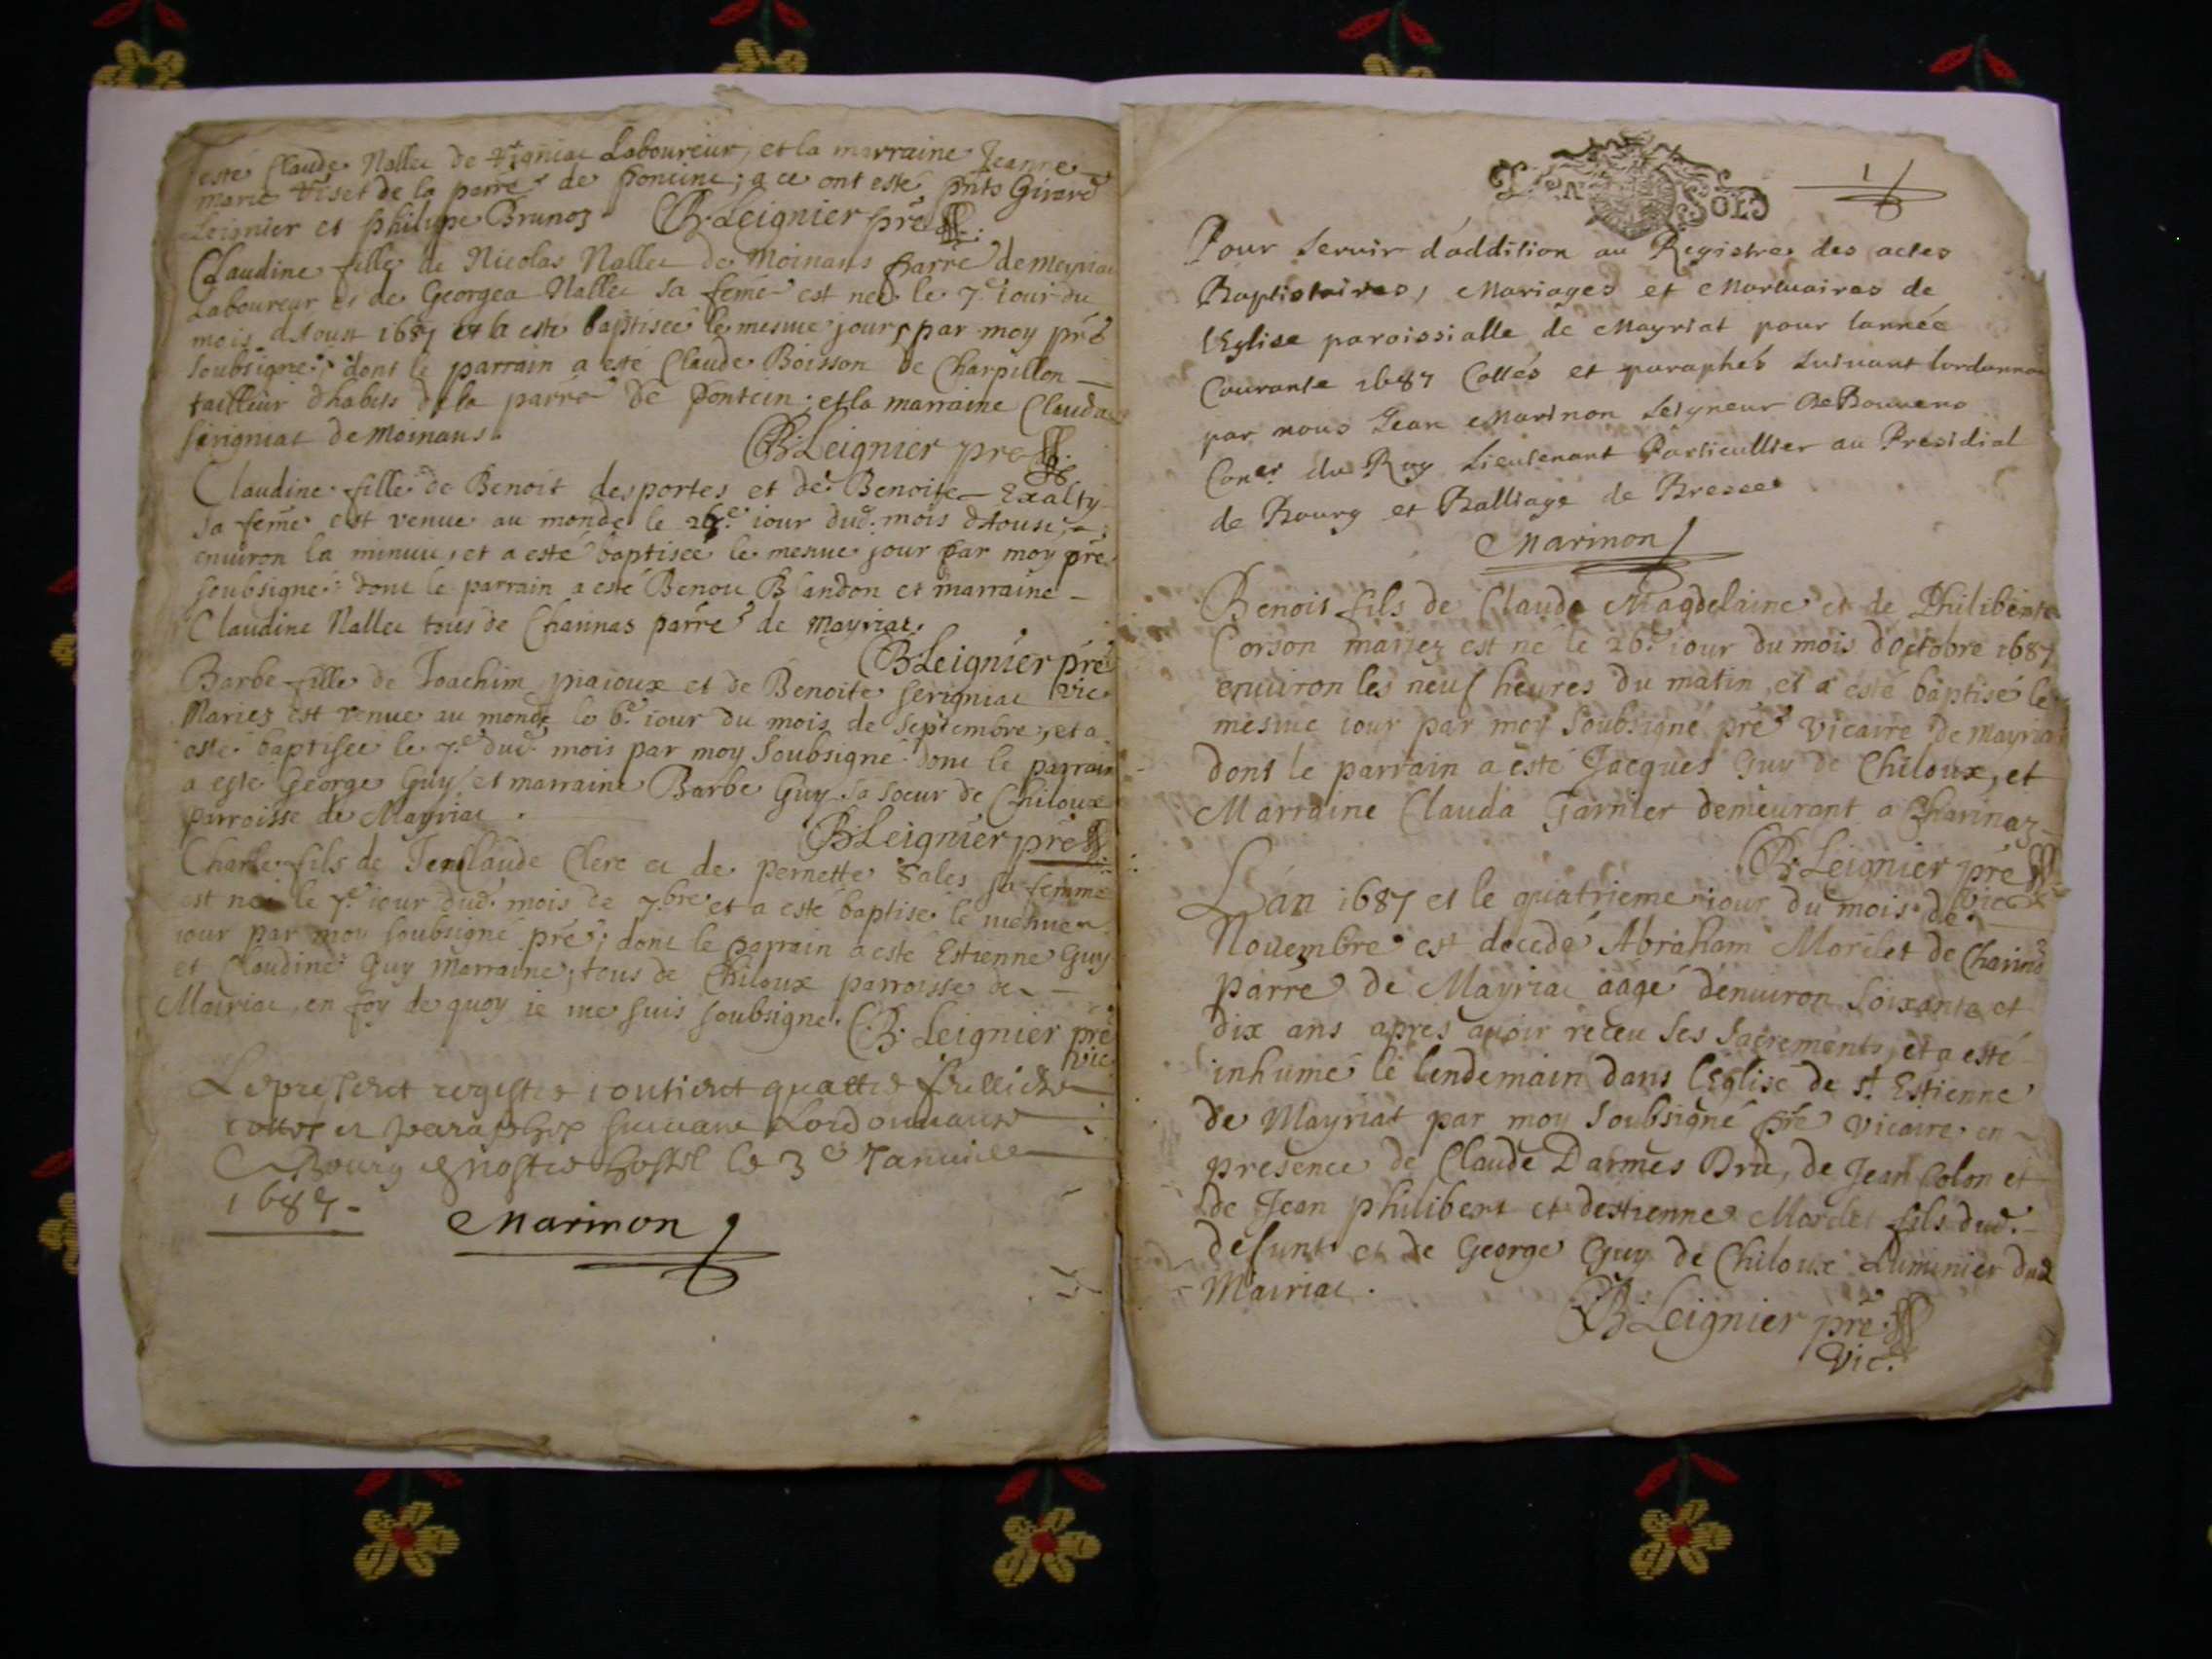 esté Claude Nallet de Vigniat Laboureur, et la marraine Jeanne
marie Viset de la parrē de poncine; a ce ont esté pnts Girard
Leignier et philippe Brunoz B. Leignier prē
Claudine fille de Nicolas Nallet de Moinans parrē de meyriat
Laboureur et de Georgea Nallet sa femē est neé le 7.e iour du
mois dAoust 1687 et a esté baptiseé le mesme jour par moy prē
soubsigné; dont le parrain a esté Claude Boisson de Charpillon
tailleur dhabits de la parrē de Poncin; et la marraine Clauda
serigniat de Moinans.
B. Leignier pre
Claudine fille de Benoit desportes et de Benoite Exalty
sa femē est venue au monde le 26.e iour dud. mois dAoust,
enuiron la minuit, et a esté baptiseé le mesme jour par moy prē
soubsigné: dont le parrain a esté Benoit Blandon et marraine
Claudine Nallet tous de Charinas parrē de Mayriat.
B. Leignier prē
vic
Barbe fille de Joachim piaioux et de Benoite serigniat
Mariez est venue au monde le 6.e iour du mois de septembre, et a
esté baptiseé le 7.e dud. mois par moy soubsigné dont le parrain
a esté George Guy et marraine Barbe Guy sa soeur de Chiloux
parroisse de Mayriat.
B. Leignier prē
Charle fils de Jenclaude Clerc et de pernette Sales sa femme
est né le 7.e iour dud. mois de 7.bre et a esté baptisé le mesme
iour par moy soubsigné prē; dont le parrain a esté Estienne Guy
et Claudine Guy Marraine, tous de Chiloux parroisse de
Mairiat, en foy de quoy ie me suis soubsigné. B. Leignier prē
vic
Le present registre contient quattre
cottés et paraphés suiuant Lordonnance
Bourg nostre hostel le 3e Januier
1687.
Marinon
Un Sols
1
Pour seruir d'addition au Registre des actes
Baptistaires, Mariages et Mortuaires de
l'Eglise paroissialle de Mayriat pour lanneé
Courante 1687 Cottés et paraphés suiuant lordonnance
par nous Jean Marinon seigneur De Bouuens
Coner du Roy Lieutenant Particullier au Presidial
de Bourg et Balliage de Bresse
Marinon
Benoit fils de Claude Magdelaine et de Philiberte
Corson mariez est né le 26.e iour du mois doctobre 1687
enuiron les neuf heures du matin, et a esté baptisé le
mesme iour par moy soubsigné prē vicaire de mayriat
dont le parrain a esté Jacques Guy de Chiloux, et
Marraine Clauda Garnier demeurant a Charinaz
B. Leignier prē
vic
Lan 1687 et le quatrieme iour du mois de
Nouembre est decedé Abraham Morelet de Charinaz
parrē de Mayriat aagé denuiron soixante et
dix ans apres auoir receu ses sacrements, et a esté
inhumé le lendemain dans l'Eglise de st. Estienne
de Mayriat par moy soubsigné prē vicaire en
presence de Claude Darmes Brie, de Jean Colon et
de Jean philibert et destienne Morelet fils dud.
defunt et de George Guy de Chiloux Luminier dud
Mairiat.
B. Leignier prē
vic.